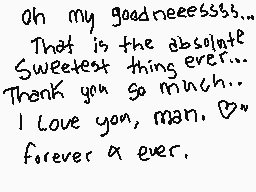 oh my goodneeessss...
That is the absolute
sweetest thing ever...
Thank you so much..
I Love you, man. ♡"
forever & ever.